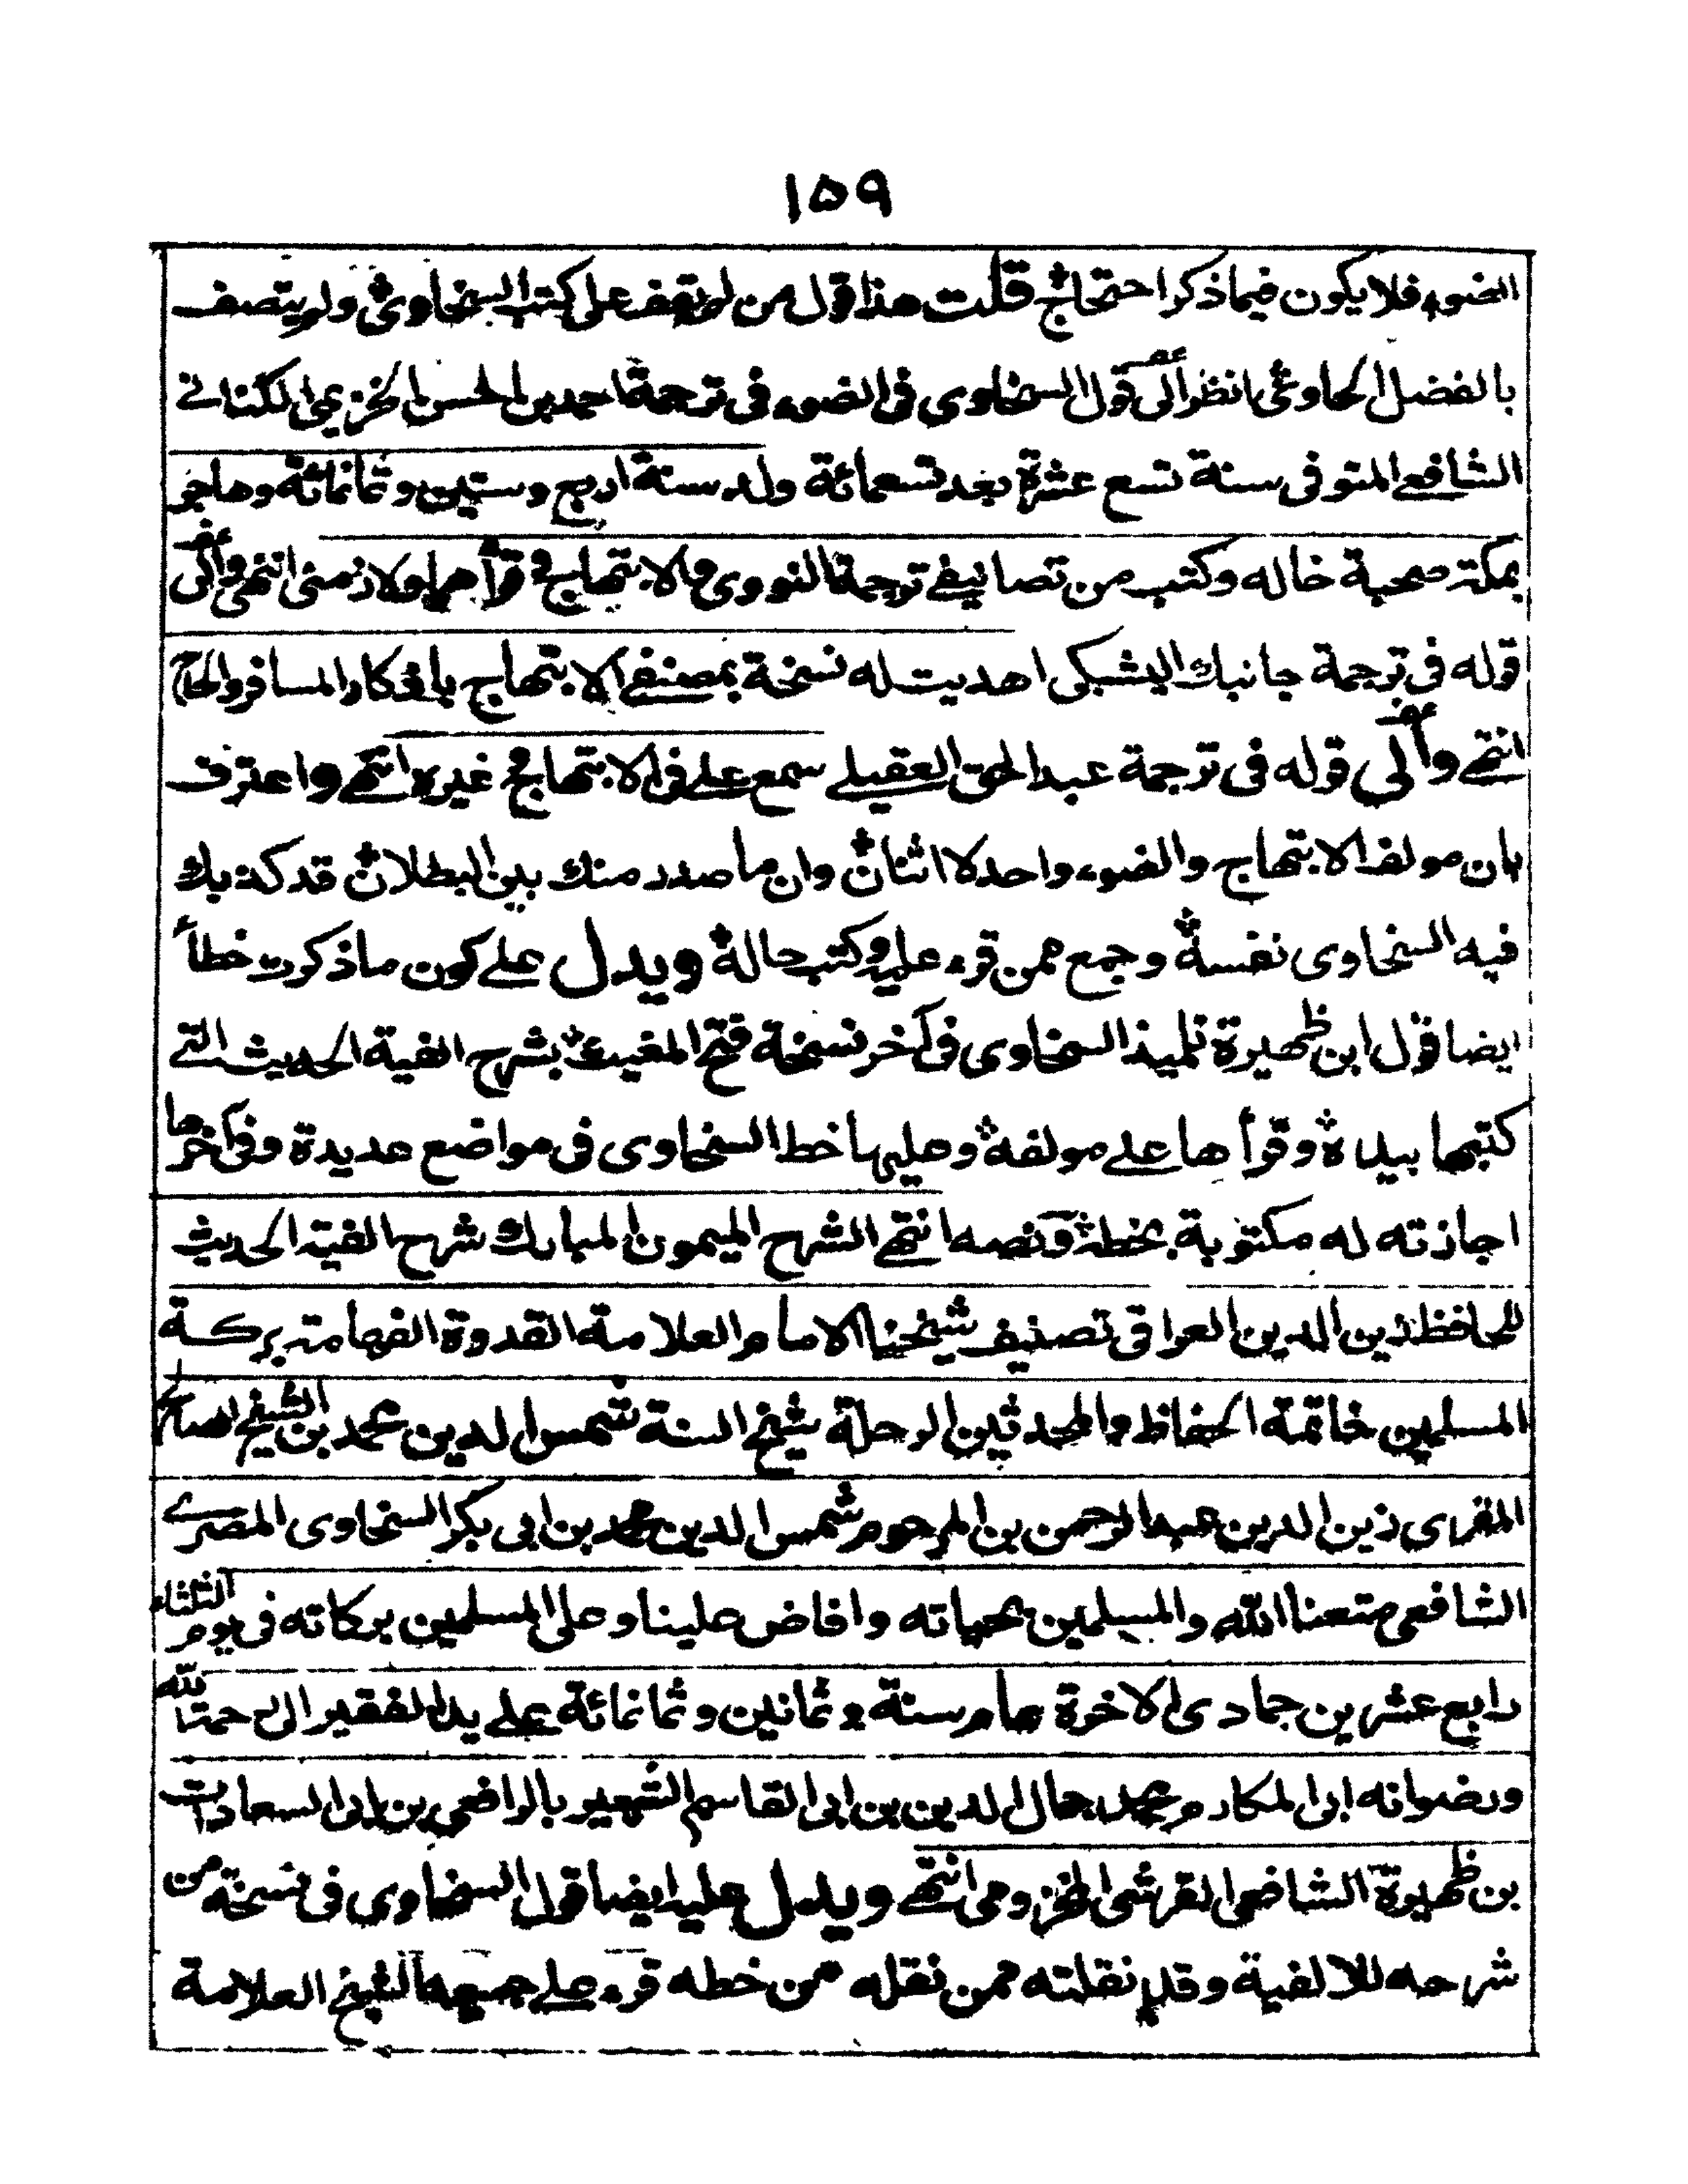 ١٥٩
الضوء فلا يكون فيما ذكر احتجاج قلت هذا قول من لم يقف على كتب السخاوي ولم يتصف
بالفضل الحاوي انظر الى قول السخاوى فى الضوء فى ترجمة احمد بن الحسن الخزيمى الكنانے
الشافعے المتوفى سنة تسع عشرة بعد تسعمائة ولد سنة اربع وستين وثمانمائة وهاجر
بمكة صحبة خاله وكتب من تصانيفے ترجمة النووى والابتهاج وقرأهما ولازمنى انتهى والى
قوله فى ترجمة جانبك اليشبكى اهديت له نسخة بمصنفے الابتهاج باذكار المسافر والحاج
انتهے والى قوله فى ترجمة عبد الحق العقيلے سمع علے فى الابتهاج غيره انتهے واعترف
بان مولف الابتهاج والضوء واحد لا اثنان وان ما صدر منك بين البطلان قد كذبك
فيه السخاوى نفسه وجمع ممن قرء عليه وكتب حاله ويدل علے كون ما ذكرت خطأ
ايضا قول ابن ظهيرة تلميذ السخاوى فى آخر نسخة فتح المغيث بشرح الفية الحديث التے
كتبها بيده وقرأها علے مولفه وعليها خط السخاوى فى مواضع عديدة وفى آخرها
اجازته له مكتوبة بخطه ونصه انتهے الشرح الميمون المبارك شرح الفية الحديث
للحافظ زين الدين العراقى تصنيف شيخنا الامام العلامة القدوة الفهامة بركة
المسلمين خاتمة الحفاظ والمحدثين الرحلة شيخ السنة شمس الدين محمد بن الشيخ الصالح
المقرى زين الدين عبد الرحمن بن المرحوم شمس الدين محمد بن ابى بكر السخاوى المصرے
الشافعى متعنا الله والمسلمين بحياته وافاض علينا وعلى المسلمين بركاته فى يوم الثلثاء
رابع عشرين جمادى الاخرة عام سنة وثمانين وثمانمائة علے يد الفقير الى رحمة الله
ورضوانه ابى المكارم محمد جمال الدين بن ابى القاسم الشهير بالرافعى بن ابى السعادات
بن ظهيرة الشافعى القرشى المخزومى انتهے ويدل عليه ايضا قول السخاوى فى نسخة من
شرحه للالفية وقد نقلته ممن نقله من خطه قرء علے جميعه الشيخ العلامة